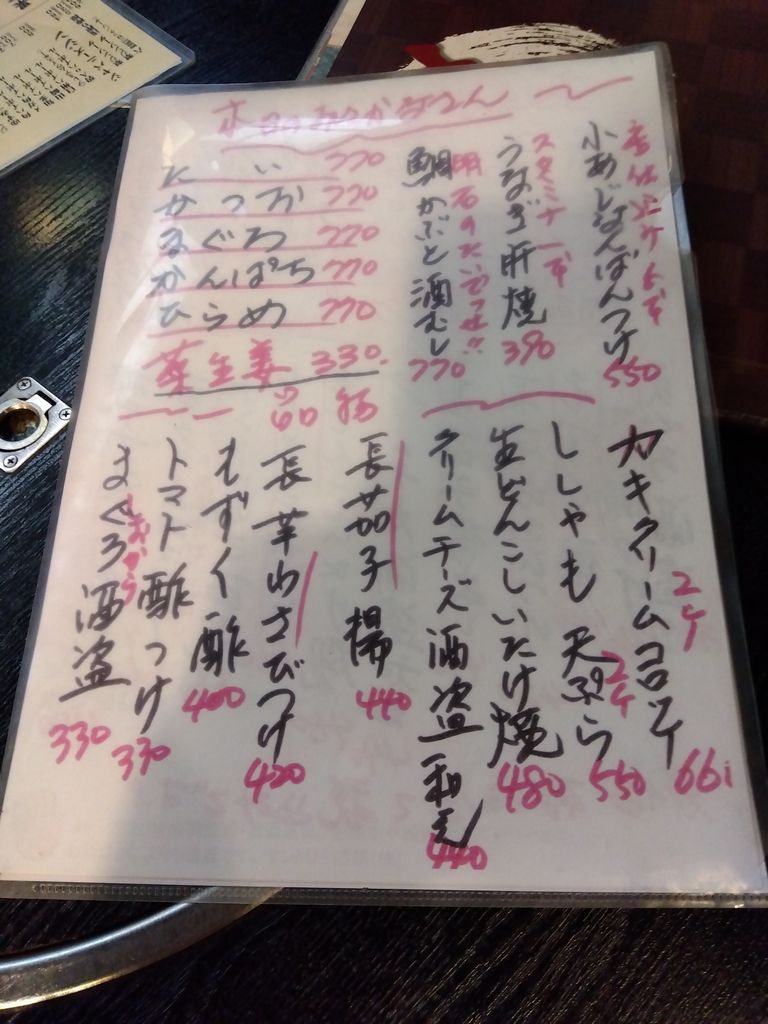 本日の
小あじなんばんつけ
550
スタミナ一本
うなぎ肝焼
390
明石のたいでっせ!!
鯛かぶと酒むし
770
たい 770
かつお 770
まぐろ 770
かんぱち 770
ひらめ 770
葉生姜 330
カキクリームコロッケ
2ケ
661
ししゃも天ぷら
2ケ
550
生どんこしいたけ焼
480
クリームチーズ酒盗和え
440
長茄子揚
440
長芋わさびつけ
420
もずく酢
400
トマト酢つけ
330
まぐろ酒盗
330